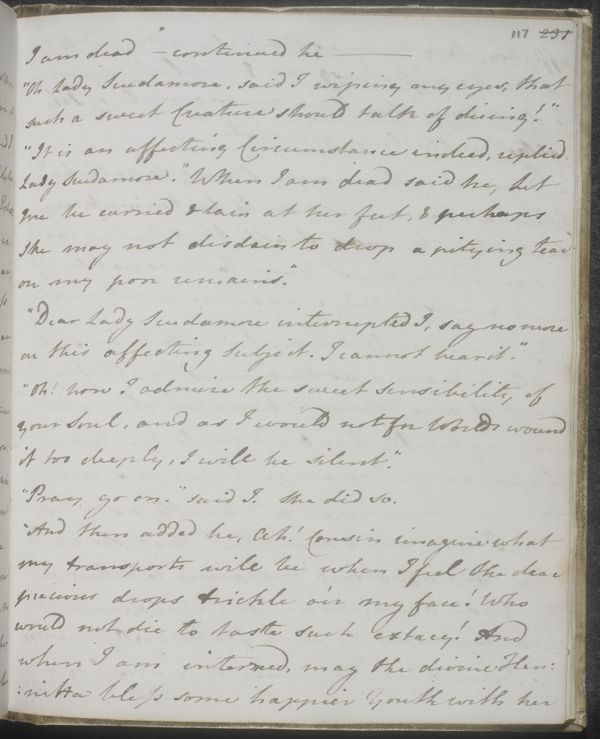 117 231
I am dead" – continued he ———
"Oh Lady Scudamore, said I wiping my eyes, that
such a sweet Creature should talk of dieing!"
"It is an affecting Circumstance indeed, replied
Lady Scudamore." "When I am dead said he, Let
me be carried & lain at her feet, & perhaps
she may not disdain to drop a pitying tear
on my poor remains."
"Dear Lady Scudamore interrupted I, say no more
on this affecting Subject. I cannot bear it."
"Oh! how I admire the sweet Sensibility of
your Soul, and as I would not for Worlds wound
it too deeply, I will be silent."
"Pray, go on." said I. She did so.
"And then added he, Ah! Cousin imagine what
my transports will be when I feel the dear
precious drops trickle o'er my face! Who
would not die to taste such extacy! And
when I am interred, may the divine Hen:
:rietta bless some happier Youth with her